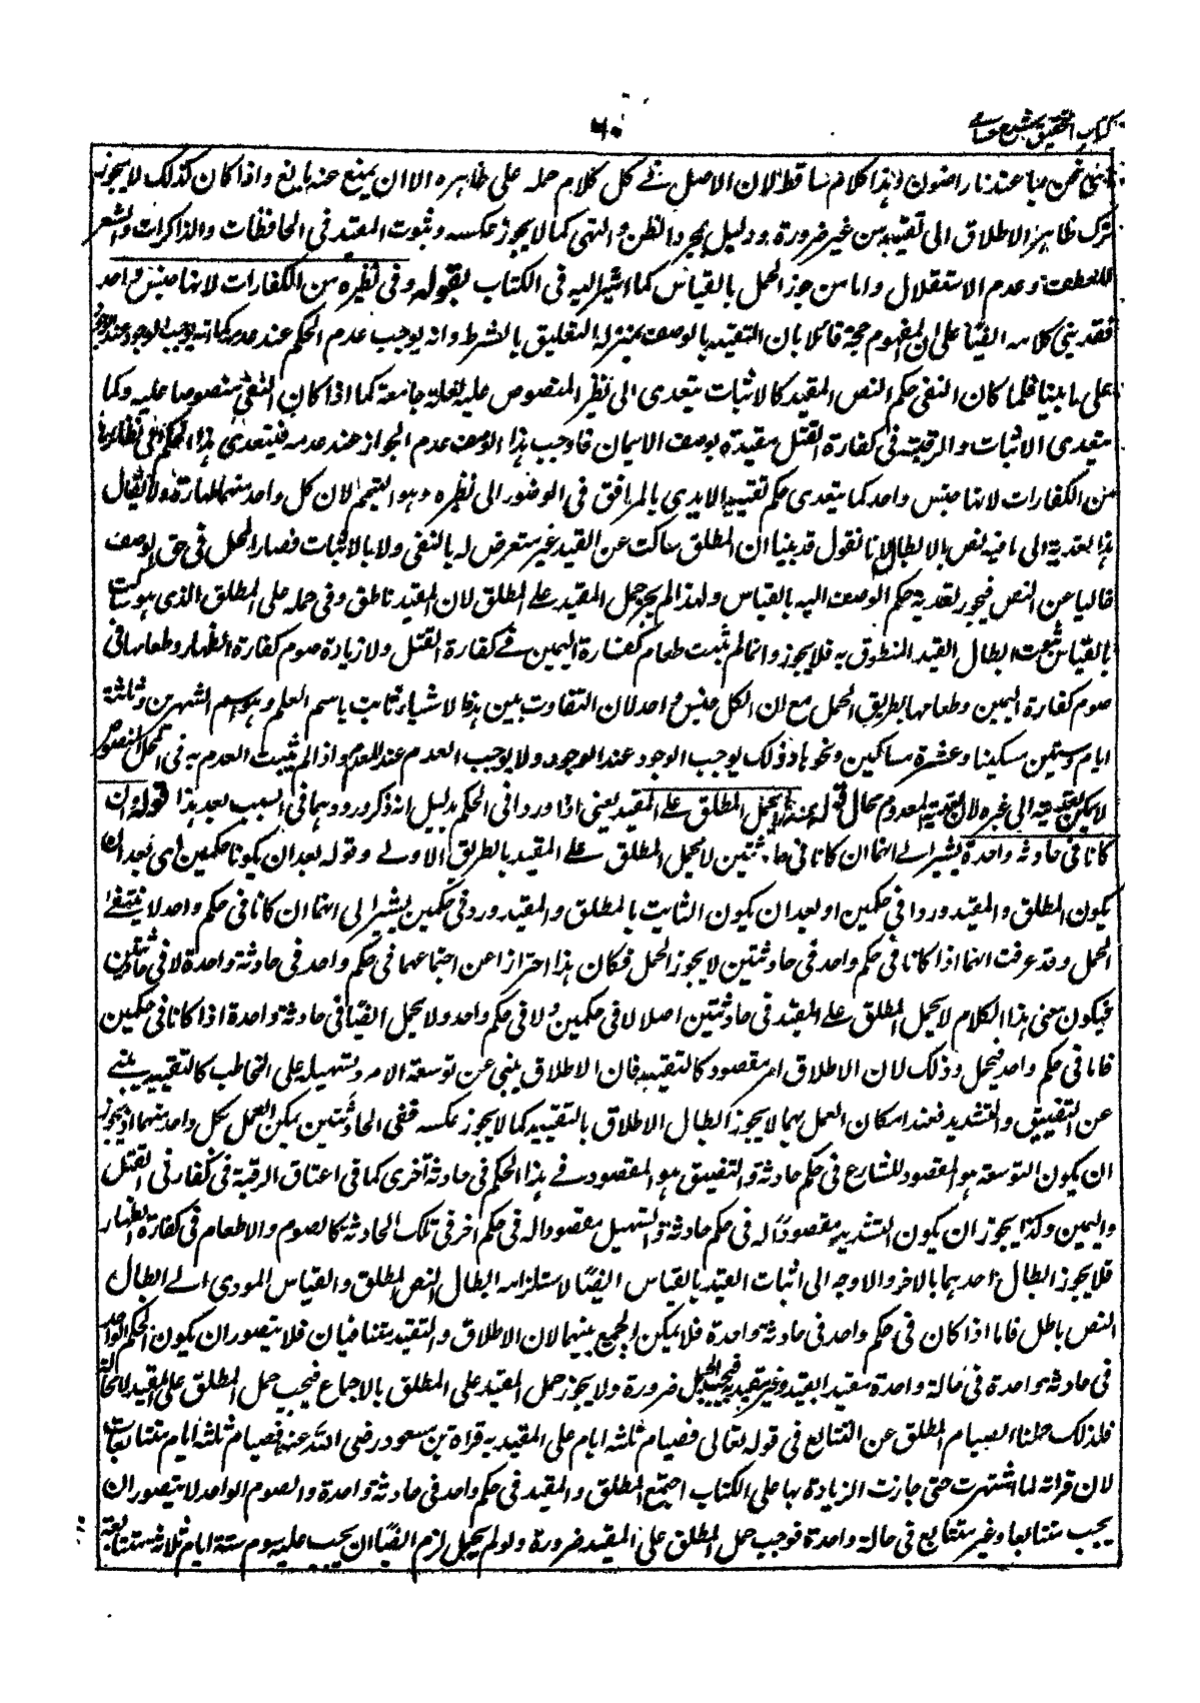 كتاب التحقيق شرح حسامى
٦٠
نحن بما عندنا راضون وهذا كلام ساقط لان الاصل فى كل كلام حمله على ظاهره الا ان يمنع عنه مانع واذا كان كذلك لا يجوز
ترك ظاهر الاطلاق الى تقييد من غير ضرورة ودليل بمجرد الظن والتهى كما لا يجوز عكسه وثبوت المقيد فى الحافظات والذاكرات
للعطف وعدم الاستقلال واما من جوز الحمل بالقياس كما اشير اليه فى الكتاب بقوله وفى نظيره من الكفارات لانها جنس واحد
فقد بنى كلامه ايضا على ان المفهوم حجة قائلا بان التقييد بالوصف بمنزلة التعليق بالشرط وانه يوجب عدم الحكم عند عدمه كما انه يوجب الوجود عند
على ما بينا فلما كان النفى حكم النص المقيد كالاثبات يتعدى الى نظير المنصوص عليه لعلة جامعة كما اذا كان النفى منصوصا عليه وكما
يتعدى الاثبات والرقبة فى كفارة القتل مقيدة بوصف الايمان فاوجب هذا الوصف عدم الجواز عند عدمه فيتعدى هذا الحكم الى نظائرها
من الكفارات لانها جنس واحد كما يتعدى حكم تقييد الايدى بالمرافق فى الوضوء الى نظيره وهو التيمم لان كل واحد منهما طهارة ولا يقال
هذا تعدية الى ما فيه نص بالابطال لانا نقول قد بينا ان المطلق ساكت عن القيد غير متعرض له بالنفى ولا بالاثبات فصار المحل فى حق الوصف
خاليا عن النص فيجوز تعدية حكم الوصف اليه بالقياس ولهذا لم يجز حمل المقيد على المطلق لان المقيد ناطق وفى حمله على المطلق الذى هو ساكت
بالقياس ابطال القيد المنطوق به فلا يجوز وانما لم يثبت طعام كفارة اليمين فى كفارة القتل ولا زيادة صوم كفارة الظهار وطعامها فى
صوم كفارة اليمين وطعامها بطريق الحمل مع ان الكل جنس واحد لان التفاوت بين هذه الاشياء ثابت باسم العلم وهو اسم الشهرين وثلثة
ايام وستين مسكينا وعشرة مساكين ونحوها وذلك يوجب الوجود عند الوجود ولا يوجب العدم عند العدم واذا لم يثبت العدم به فى المحل المنصوص
لا يمكن تعديته الى غيره لان تعدية المعدوم محال قوله وعندنا لا يحمل المطلق على المقيد يعنى اذا وردا فى الحكم بدليل انه ذكر ورودهما فى السبب بعد هذا قوله وان
كانا فى حادثة واحدة يشير الى انهما ان كانا فى حادثتين لا يحمل المطلق على المقيد بالطريق الاولى وقوله بعد ان يكونا حكمين اى بعد ان
يكون المطلق والمقيد وردا فى حكمين او بعد ان يكون الثابت بالمطلق والمقيد ورد فى حكمين يشير الى انهما ان كانا فى حكم واحد لا ينتفى
الحمل وقد عرفت انهما اذا كانا فى حكم واحد فى حادثتين لا يجوز الحمل فكان هذا احترازا عن اجتماعهما فى حكم واحد فى حادثة واحدة لا فى حادثتين
فيكون معنى هذا الكلام لا يحمل المطلق على المقيد فى حادثتين اصلا لا فى حكمين ولا فى حكم واحد ولا يحمل ايضا فى حادثة واحدة اذا كانا فى حكمين
فاما فى حكم واحد فيحمل وذلك لان الاطلاق امر مقصود كالتقييد فان الاطلاق ينبئ عن توسعة الامر وتسهيله على المخاطب كالتقييد ينبئ
عن التضييق والتشديد فعند امكان العمل بهما لا يجوز ابطال الاطلاق بالتقييد كما لا يجوز عكسه ففى الحادثتين يمكن العمل بكل واحد منهما اذ يجوز
ان يكون التوسعة هو المقصود للشارع فى حكم حادثة والتضييق هو المقصود فى هذا الحكم فى حادثة اخرى كما فى اعتاق الرقبة فى كفارتى القتل
واليمين وكذا يجوز ان يكون التشديد مقصودا له فى حكم حادثة والتسهيل مقصودا له فى حكم آخر فى تلك الحادثة كالصوم والاطعام فى كفارة الظهار
فلا يجوز ابطال احدهما بالاخر والاوجه الى اثبات القيد بالقياس ايضا لاستلزامه ابطال النص المطلق والقياس المودى الى ابطال
النص باطل فاما اذا كان فى حكم واحد فى حادثة واحدة فلا يمكن الجمع بينهما لان الاطلاق والتقييد يتنافيان فلا يتصور ان يكون الحكم الواحد
فى حادثة واحدة فى حالة واحدة مقيدا بقيد وغير مقيد به فيجب الحمل ضرورة ولا يجوز حمل المقيد على المطلق بالاجماع فيجب حمل المطلق على المقيد لا محالة
فلذلك حملنا الصيام المطلق عن التتابع فى قوله تعالى فصيام ثلثه ايام على المقيد به قراة بن مسعود رضى الله عنه فصيام ثلثه ايام متتابعات
لان قراته لما اشتهرت حتى جازت الزيادة بها على الكتاب اجتمع المطلق والمقيد فى حكم واحد فى حادثة واحدة والصوم الواحد لا يتصور ان
يجب متتابعا وغير متتابع فى حالة واحدة فوجب حمل المطلق على المقيد ضرورة ولو لم يحمل لزم ايضا ان يجب عليه صوم ستة ايام ثلاثة متتابعة